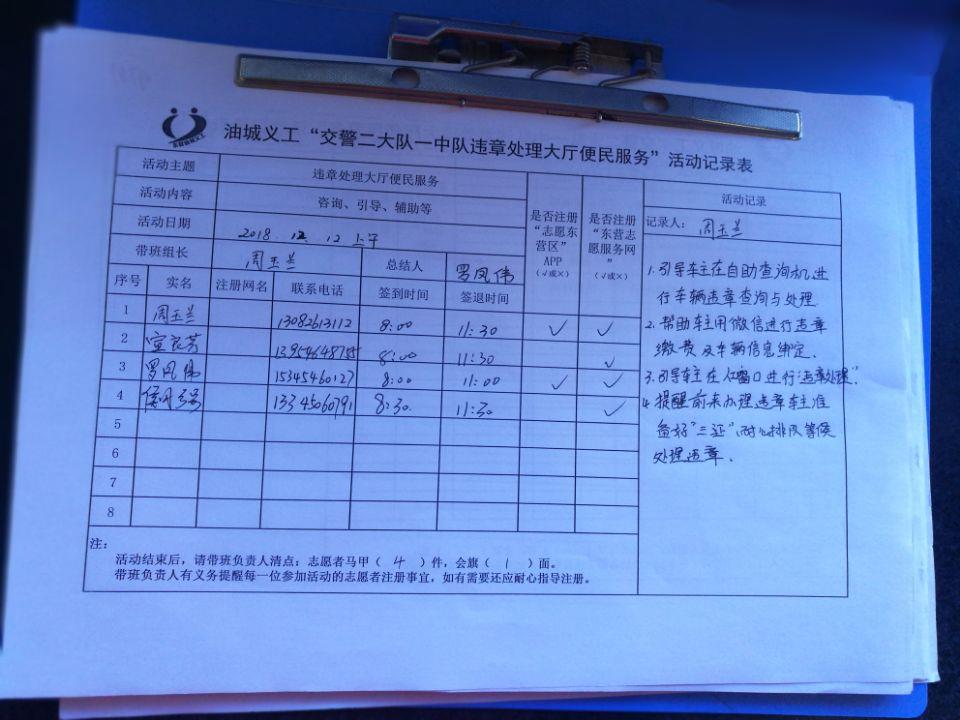 油城义工“交警二大队一中队违章处理大厅便民服务”活动记录表
活动主题 违章处理大厅便民服务
活动内容 咨询、引导、辅助等
活动日期 2018. 12. 12 上午
带班组长 周玉兰 总结人 罗凤伟
是否注册“志愿东营区”APP（√或×）
是否注册“东营志愿服务网”（√或×）
活动记录
记录人： 周玉兰
序号 实名 注册网名 联系电话 签到时间 签退时间
1 周玉兰 13082613112 8:00 11:30 √ √
2 13954648755 8:00 11:30 √
3 罗凤伟 15345460127 8:00 11:00 √ √
4 13345060791 8:30 11:30 √
5
6
7
8
1. 引导车主在自助查询机进
行车辆违章查询与处理
2. 帮助车主用微信进行违章
缴费及车辆信息绑定.
3. 引导车主在人工窗口进行违章处理.
4. 提醒前来办理违章车主准
备好“三证”,耐心排队等候
处理违章.
注：
活动结束后，请带班负责人清点：志愿者马甲（ 4 ）件，会旗（ 1 ）面。
带班负责人有义务提醒每一位参加活动的志愿者注册事宜，如有需要还应耐心指导注册。